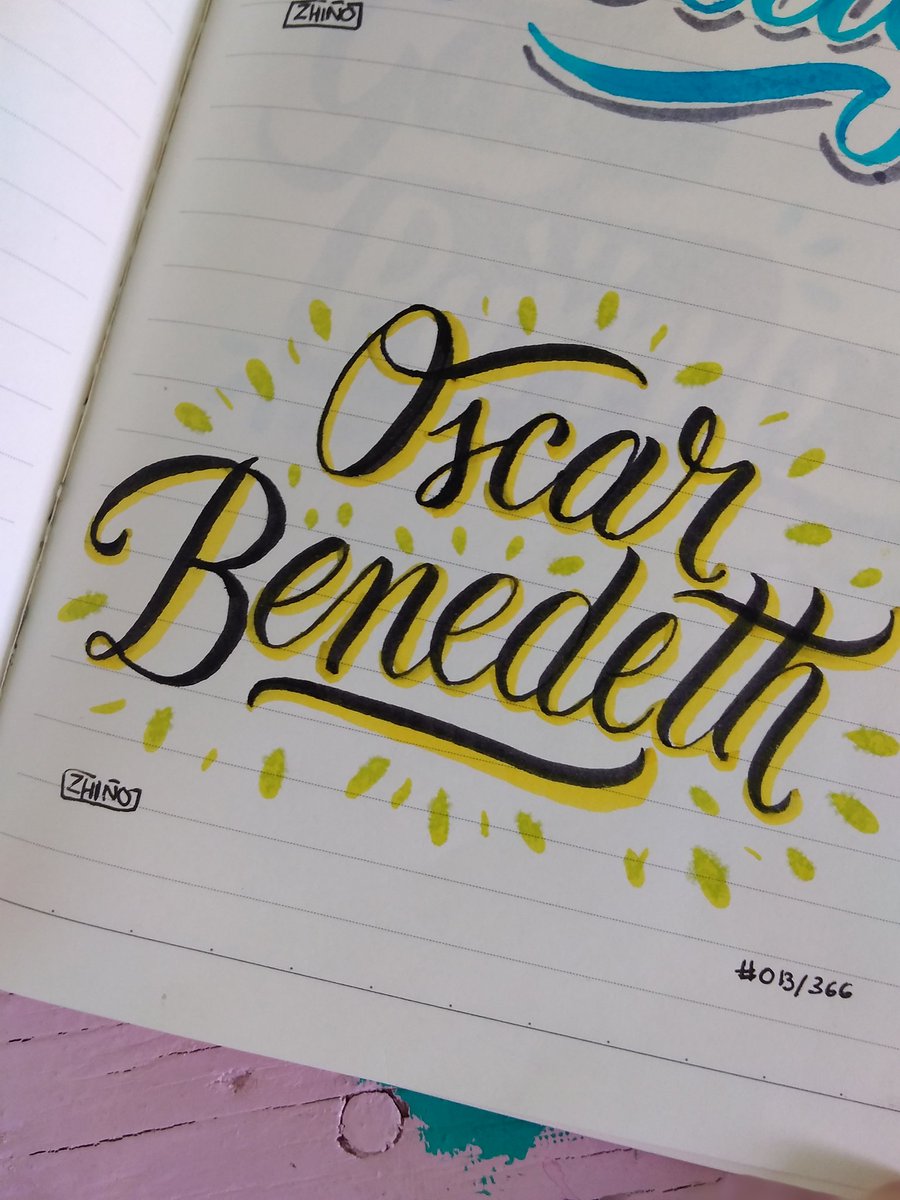 ZHIÑO
Oscar
Benedeth
ZHIÑO
#013/366